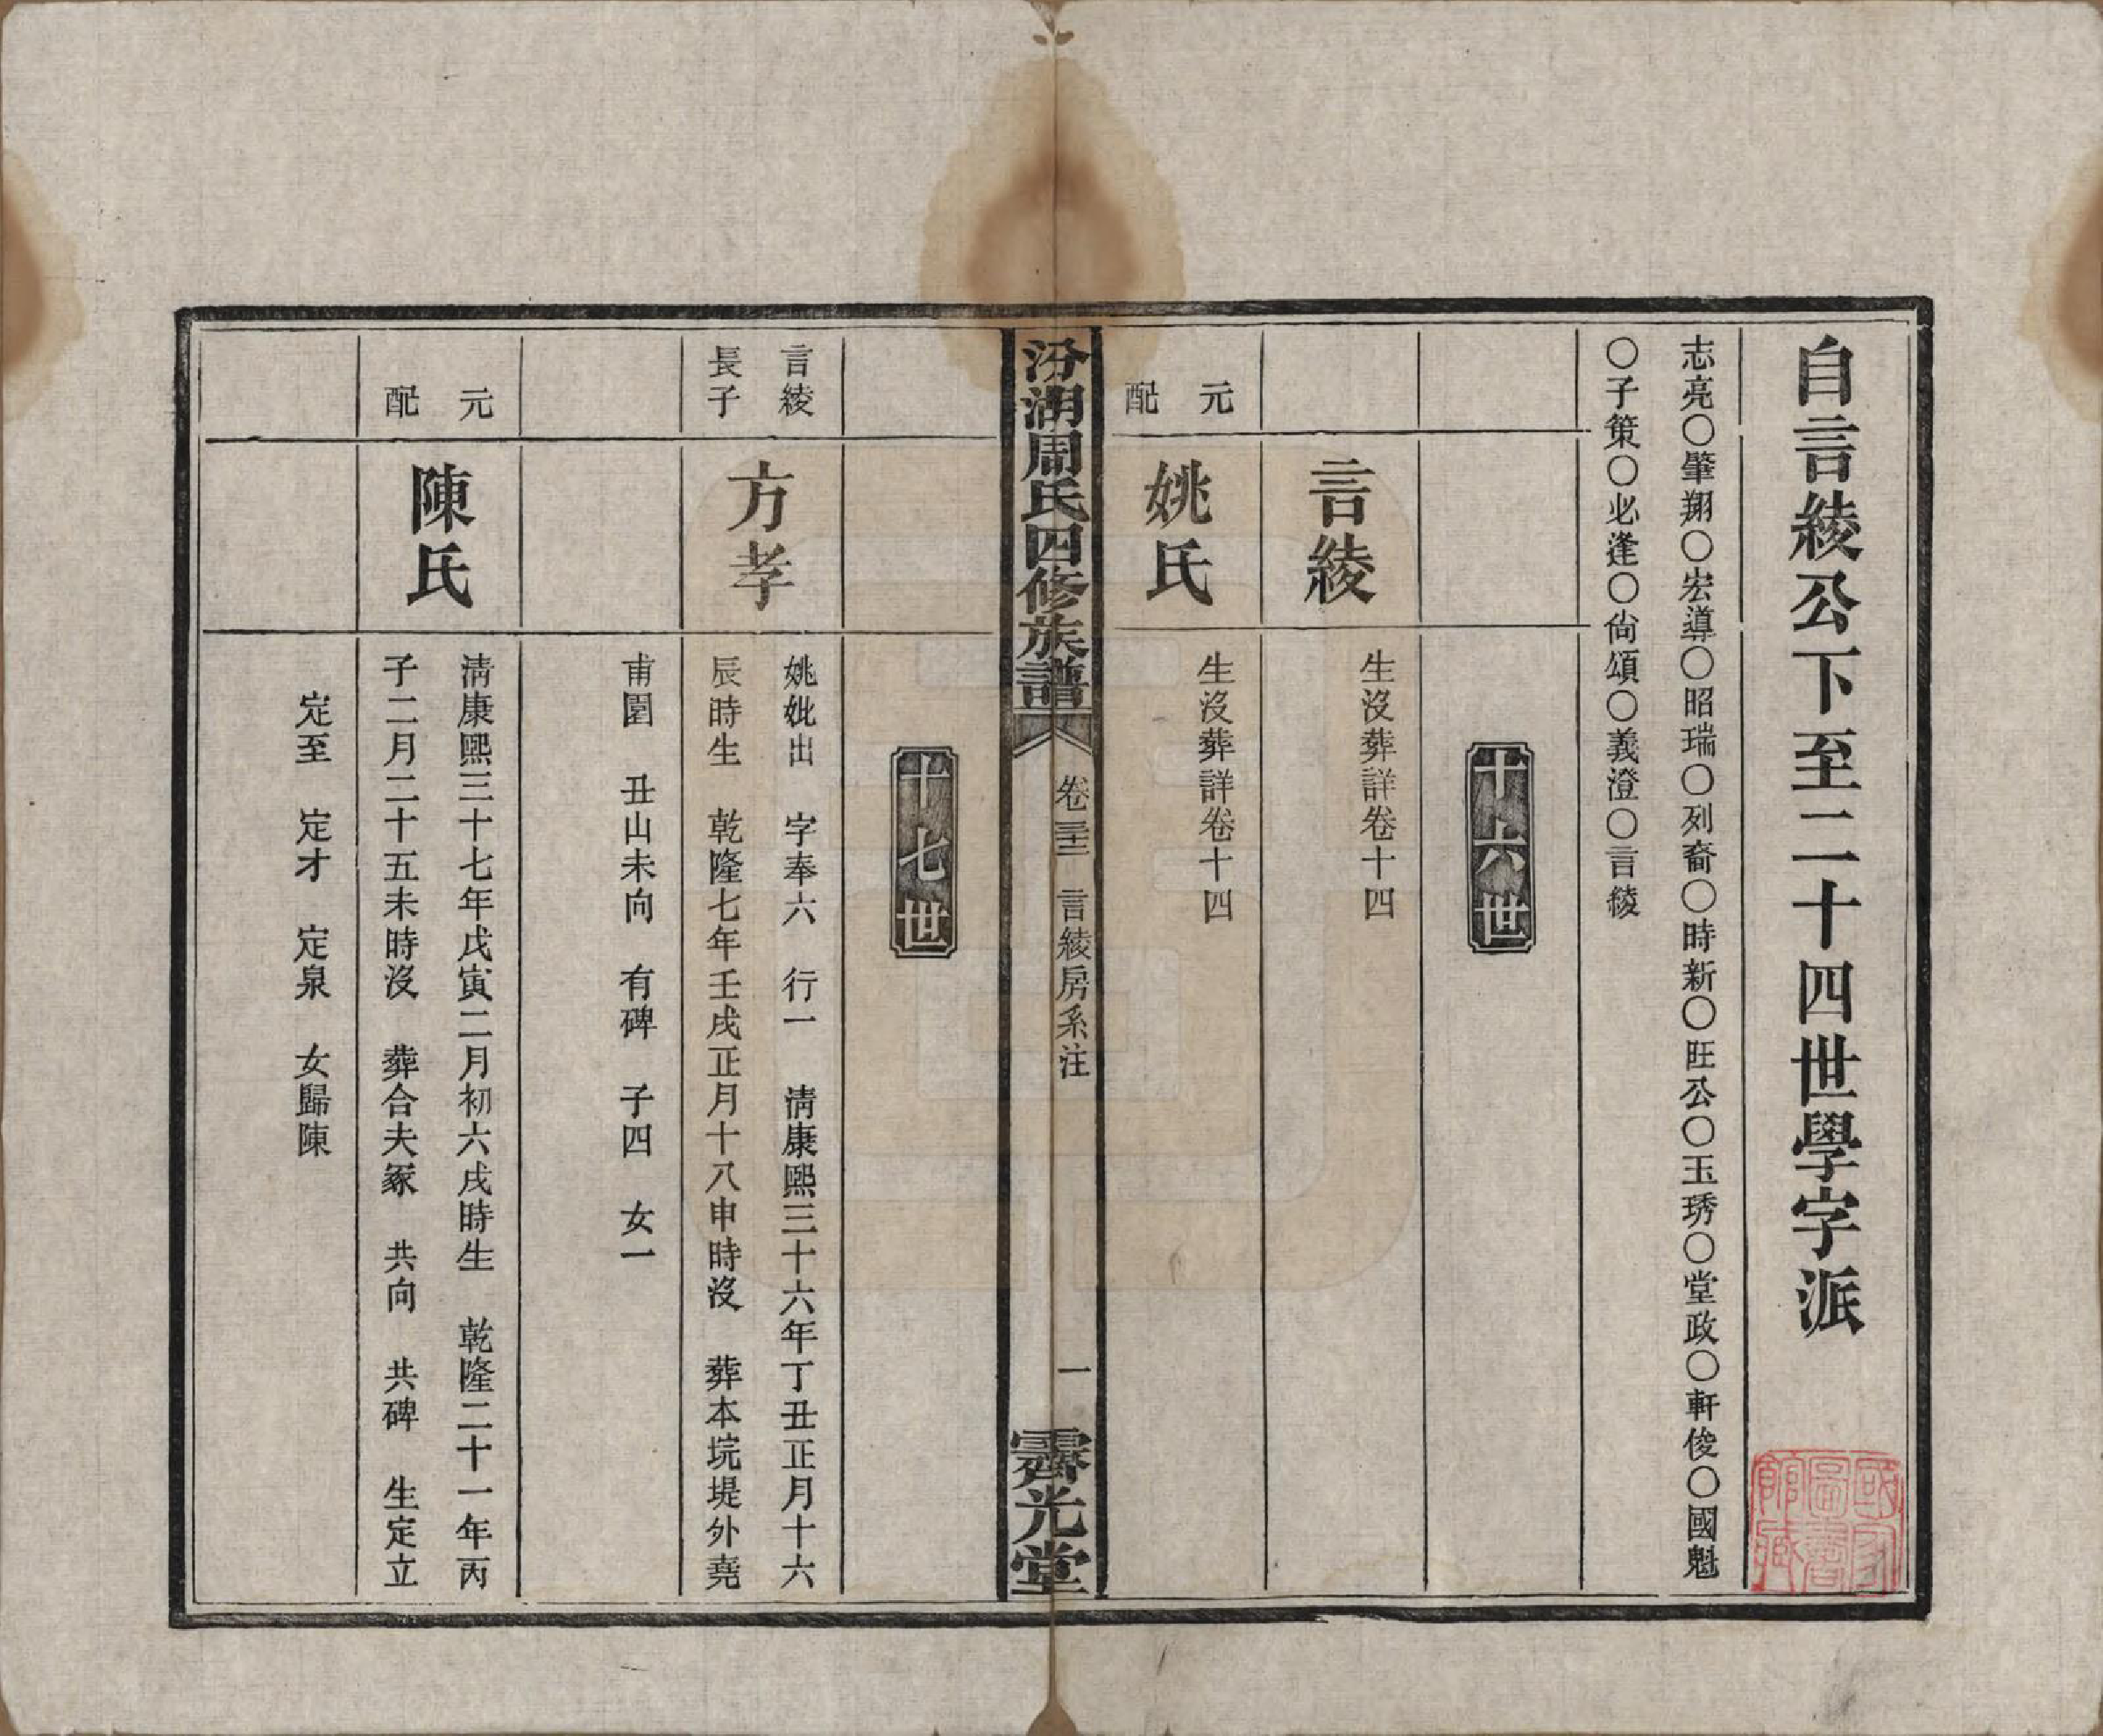 自言綾公下至二十四世學字派
志亮〇肇翔〇宏導〇昭瑞〇列裔〇時新〇旺公〇玉琇〇堂政〇軒俊〇國魁
〇子策〇必逢〇尙頌〇義澄〇言綾
十六世
言綾
生沒葬詳卷十四
元配
姚氏
生沒葬詳卷十四
汾湖周氏四修族譜
卷三十三 言綾房系注
一
霽光堂
十七世
言綾
長子
方孝
姚妣出 字奉六 行一 淸康熙三十六年丁丑正月十六
辰時生 乾隆七年壬戌正月十八申時沒 葬本垸堤外堯
甫園 丑山未向 有碑 子四 女一
元配
陳氏
淸康熙三十七年戊寅二月初六戌時生 乾隆二十一年丙
子二月二十五未時沒 葬合夫冢 共向 共碑 生定立
定至 定才 定泉 女歸陳
國家圖書館藏